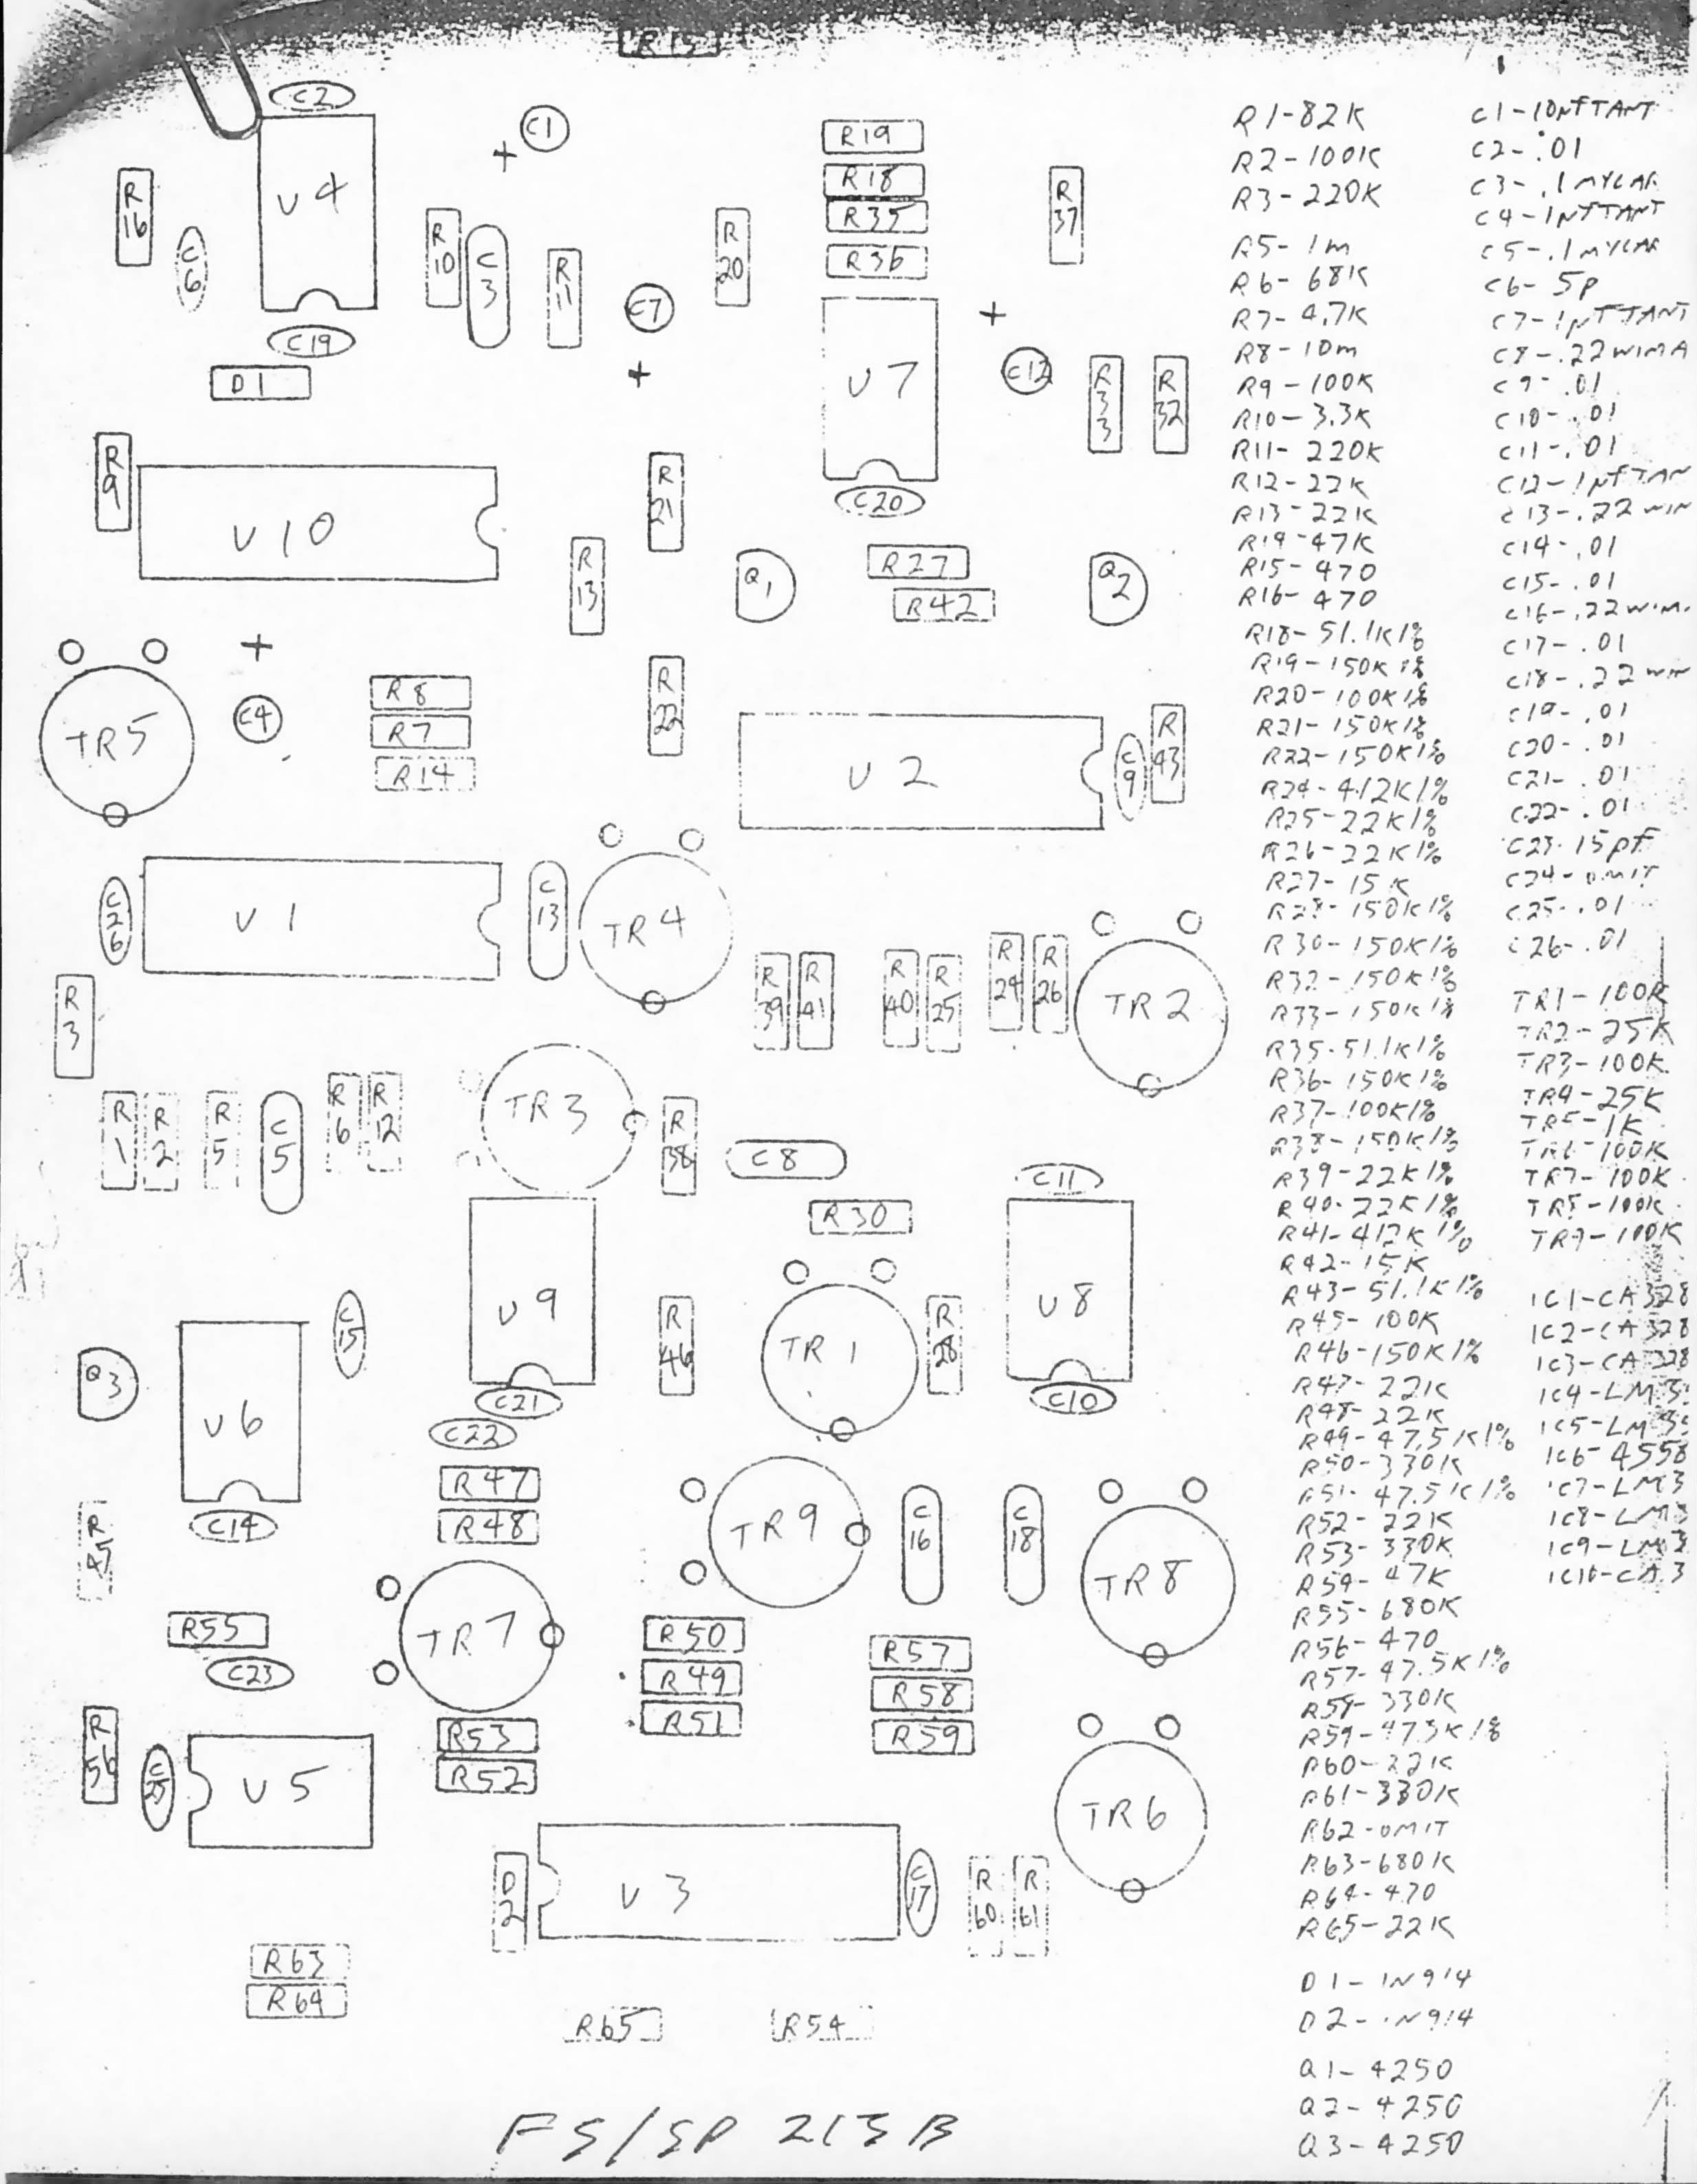 R15
C2
C1
+
R19
R18
R35
R36
R 16
U4
C 6
R 10
C 3
R 11
C7
+
R 20
R 37
C19
D1
U7
+
C12
R 33
R 32
R 9
U10
R 21
C20
R 13
Q1
R27
R42
Q2
+
TR5
C4
R8
R7
R14
R 22
U2
C 9
R 43
C 26
U1
C 13
TR4
R 39
R 41
R 40
R 25
R 24
R 26
TR2
R 3
R 1
R 2
R 5
C 5
R 6
R 12
TR3
R 38
C8
C11
R30
U9
U8
C 15
R 46
TR1
R 28
Q3
U6
C21
C22
C10
R47
R48
C14
TR9
C 16
C 18
TR8
R55
C23
TR7
R50
R49
R51
R57
R58
R59
R 56
C 25
U5
R53
R52
TR6
D 2
U3
C 17
R 60
R 61
R63
R64
R65
R54
FS/SP 213B
R1-82K
R2-100K
R3-220K
R5-1m
R6-68K
R7-4.7K
R8-10m
R9-100K
R10-3.3K
R11-220K
R12-22K
R13-22K
R14-47K
R15-470
R16-470
R18-51.1K1%
R19-150K1%
R20-100K1%
R21-150K1%
R22-150K1%
R24-412K1%
R25-22K1%
R26-22K1%
R27-15K
R28-150K1%
R30-150K1%
R32-150K1%
R33-150K1%
R35-51.1K1%
R36-150K1%
R37-100K1%
R38-150K1%
R39-22K1%
R40-22K1%
R41-412K1%
R42-15K
R43-51.1K1%
R45-100K
R46-150K1%
R47-22K
R48-22K
R49-47.5K1%
R50-330K
R51-47.5K1%
R52-22K
R53-330K
R54-47K
R55-680K
R56-470
R57-47.5K1%
R58-330K
R59-47.5K1%
R60-22K
R61-330K
R62-OMIT
R63-680K
R64-470
R65-22K
D1-1N914
D2-1N914
Q1-4250
Q2-4250
Q3-4250
C1-10µf TANT
C2-.01
C3-.1 MYLAR
C4-1µf TANT
C5-.1 MYLAR
C6-5p
C7-1µf TANT
C8-.22 WIMA
C9-.01
C10-.01
C11-.01
C12-1µf TAN
C13-.22 WIM
C14-.01
C15-.01
C16-.22 WIM
C17-.01
C18-.22 WIM
C19-.01
C20-.01
C21-.01
C22-.01
C23-15pf
C24-OMIT
C25-.01
C26-.01
TR1-100K
TR2-25K
TR3-100K
TR4-25K
TR5-1K
TR6-100K
TR7-100K
TR8-100K
TR9-100K
IC1-CA328
IC2-CA328
IC3-CA328
IC4-LM3
IC5-LM3
IC6-4558
IC7-LM3
IC8-LM3
IC9-LM3
IC10-CA3